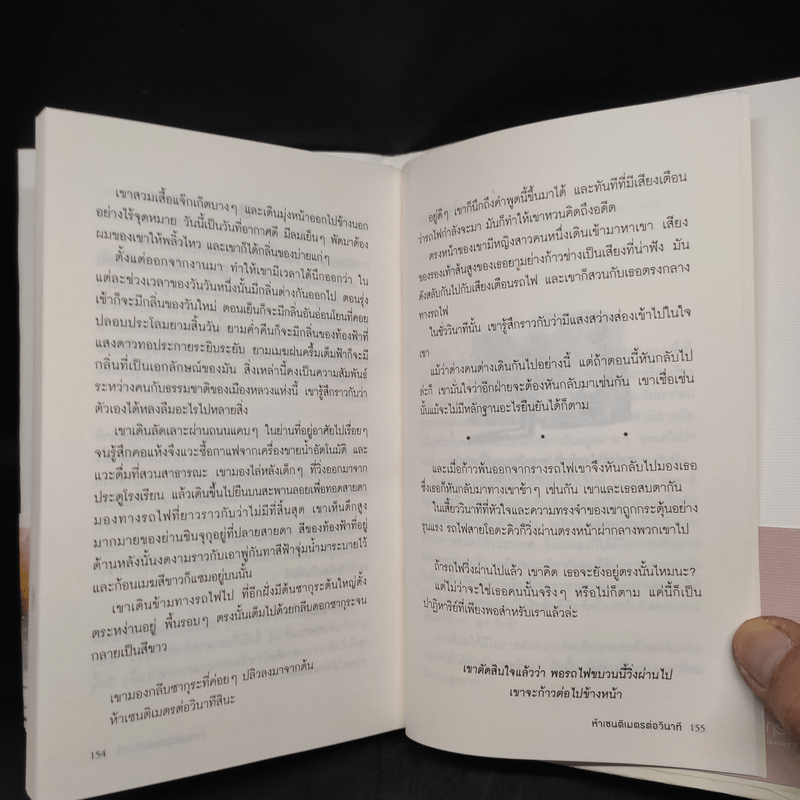 เขาสวมเสื้อแจ็กเก็ตบางๆ และเดินมุ่งหน้าออกไปข้างนอก
อย่างไร้จุดหมาย วันนี้เป็นวันที่อากาศดี มีลมเย็นๆ พัดมาต้อง
ผมของเขาให้พลิ้วไหว และเขาก็ได้กลิ่นของบ่ายแก่ๆ
ตั้งแต่ออกจากงานมา ทำให้เขามีเวลาได้นึกออกว่า ใน
แต่ละช่วงเวลาของวันวันหนึ่งนั้นมีกลิ่นต่างกันออกไป ตอนรุ่ง
เช้าก็จะมีกลิ่นของวันใหม่ ตอนเย็นก็จะมีกลิ่นอันอ่อนโยนที่คอย
ปลอบประโลมยามสิ้นวัน ยามค่ำคืนก็จะมีกลิ่นของท้องฟ้าที่
แสงดาวทอประกายระยิบระยับ ยามเมฆฝนครึ้มเต็มฟ้าก็จะมี
กลิ่นที่เป็นเอกลักษณ์ของมัน สิ่งเหล่านี้คงเป็นความสัมพันธ์
ระหว่างคนกับธรรมชาติของเมืองหลวงแห่งนี้ เขารู้สึกราวกับว่า
ตัวเองได้หลงลืมอะไรไปหลายสิ่ง
เขาเดินลัดเลาะผ่านถนนแคบๆ ในย่านที่อยู่อาศัยไปเรื่อยๆ
จนรู้สึกคอแห้งจึงแวะซื้อกาแฟจากเครื่องขายน้ำอัตโนมัติ และ
แวะดื่มที่สวนสาธารณะ เขามองไล่หลังเด็กๆ ที่วิ่งออกมาจาก
ประตูโรงเรียน แล้วเดินขึ้นไปยืนบนสะพานลอยเพื่อทอดสายตา
มองทางรถไฟที่ยาวราวกับว่าไม่มีที่สิ้นสุด เขาเห็นตึกสูง
มากมายของย่านชินจุกุอยู่ที่ปลายสายตา สีของท้องฟ้าที่อยู่
ด้านหลังนั้นงดงามราวกับเอาพู่กันทาสีฟ้าจุ่มน้ำมาระบายไว้
และก้อนเมฆสีขาวก็แซมอยู่บนนั้น
เขาเดินข้ามทางรถไฟไป ที่อีกฝั่งมีต้นซากุระต้นใหญ่ตั้ง
ตระหง่านอยู่ พื้นรอบๆ ตรงนั้นเต็มไปด้วยกลีบดอกซากุระจน
กลายเป็นสีขาว
เขามองกลีบซากุระที่ค่อยๆ ปลิวลงมาจากต้น
ห้าเซนติเมตรต่อวินาทีสินะ
154
อยู่ดีๆ เขาก็นึกถึงคำพูดนี้ขึ้นมาได้ และทันทีที่มีเสียงเตือน
ว่ารถไฟกำลังจะมา มันก็ทำให้เขาหวนคิดถึงอดีต
ตรงหน้าของเขามีหญิงสาวคนหนึ่งเดินเข้ามาหาเขา เสียง
ของรองเท้าส้นสูงของเธอยามย่างก้าวช่างเป็นเสียงที่น่าฟัง มัน
ดังสลับกันไปกับเสียงเตือนรถไฟ และเขาก็สวนกับเธอตรงกลาง
ทางรถไฟ
ในชั่ววินาทีนั้น เขารู้สึกราวกับว่ามีแสงสว่างส่องเข้าไปในใจ
เขา
แม้ว่าต่างคนต่างเดินกันไปอย่างนี้ แต่ถ้าตอนนี้หันกลับไป
ล่ะก็ เขามั่นใจว่าอีกฝ่ายจะต้องหันกลับมาเช่นกัน เขาเชื่อเช่น
นั้นแม้จะไม่มีหลักฐานอะไรยืนยันได้ก็ตาม
* * *
และเมื่อก้าวพ้นออกจากรางรถไฟเขาจึงหันกลับไปมองเธอ
ซึ่งเธอก็หันกลับมาทางเขาช้าๆ เช่นกัน เขาและเธอสบตากัน
ในเสี้ยววินาทีที่หัวใจและความทรงจำของเขาถูกกระตุ้นอย่าง
รุนแรง รถไฟสายโอดะคิวก็วิ่งผ่านตรงหน้าผ่ากลางพวกเขาไป
ถ้ารถไฟวิ่งผ่านไปแล้ว เขาคิด เธอจะยังอยู่ตรงนั้นไหมนะ?
แต่ไม่ว่าจะใช่เธอคนนั้นจริงๆ หรือไม่ก็ตาม แค่นี้ก็เป็น
ปาฏิหาริย์ที่เพียงพอสำหรับเราแล้วล่ะ
เขาตัดสินใจแล้วว่า พอรถไฟขบวนนี้วิ่งผ่านไป
เขาจะก้าวต่อไปข้างหน้า
ห้าเซนติเมตรต่อวินาที 155